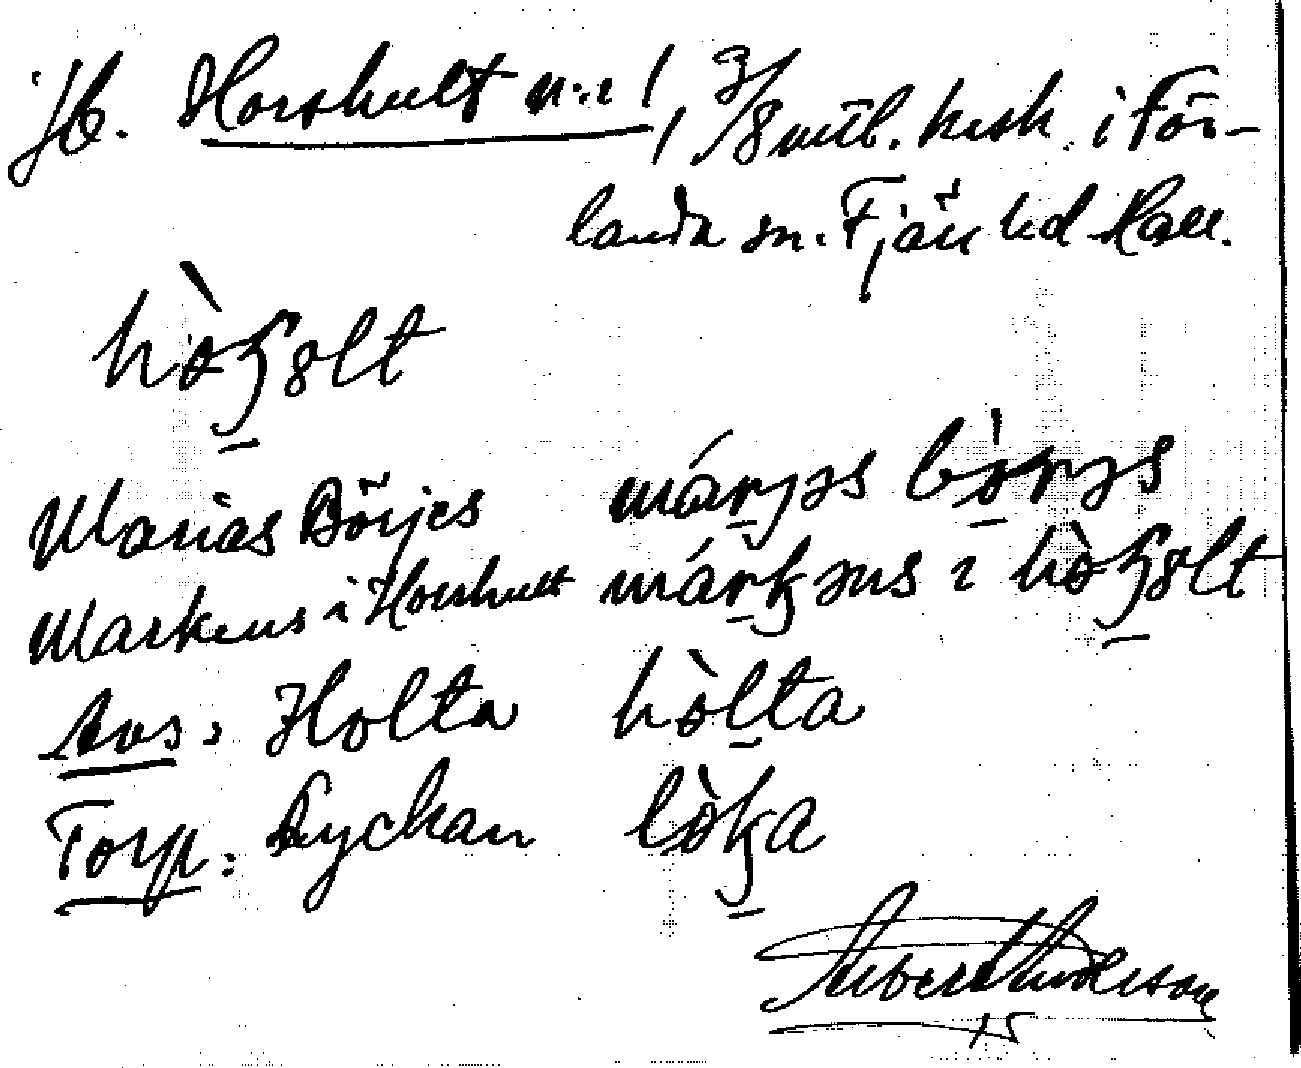 Jb. Horshult n:r 1, 3/8 mtl. krsk. i För-
landa sn. Fjäre hd Hall.
hòʂɵlt
Marias Börjes márjəs bòrjəs
Markens i Horshult márkəns ı hòʂɵlt
Avs: Holta hòlta
Torp: Lyckan lòka
Albert Anderson
15